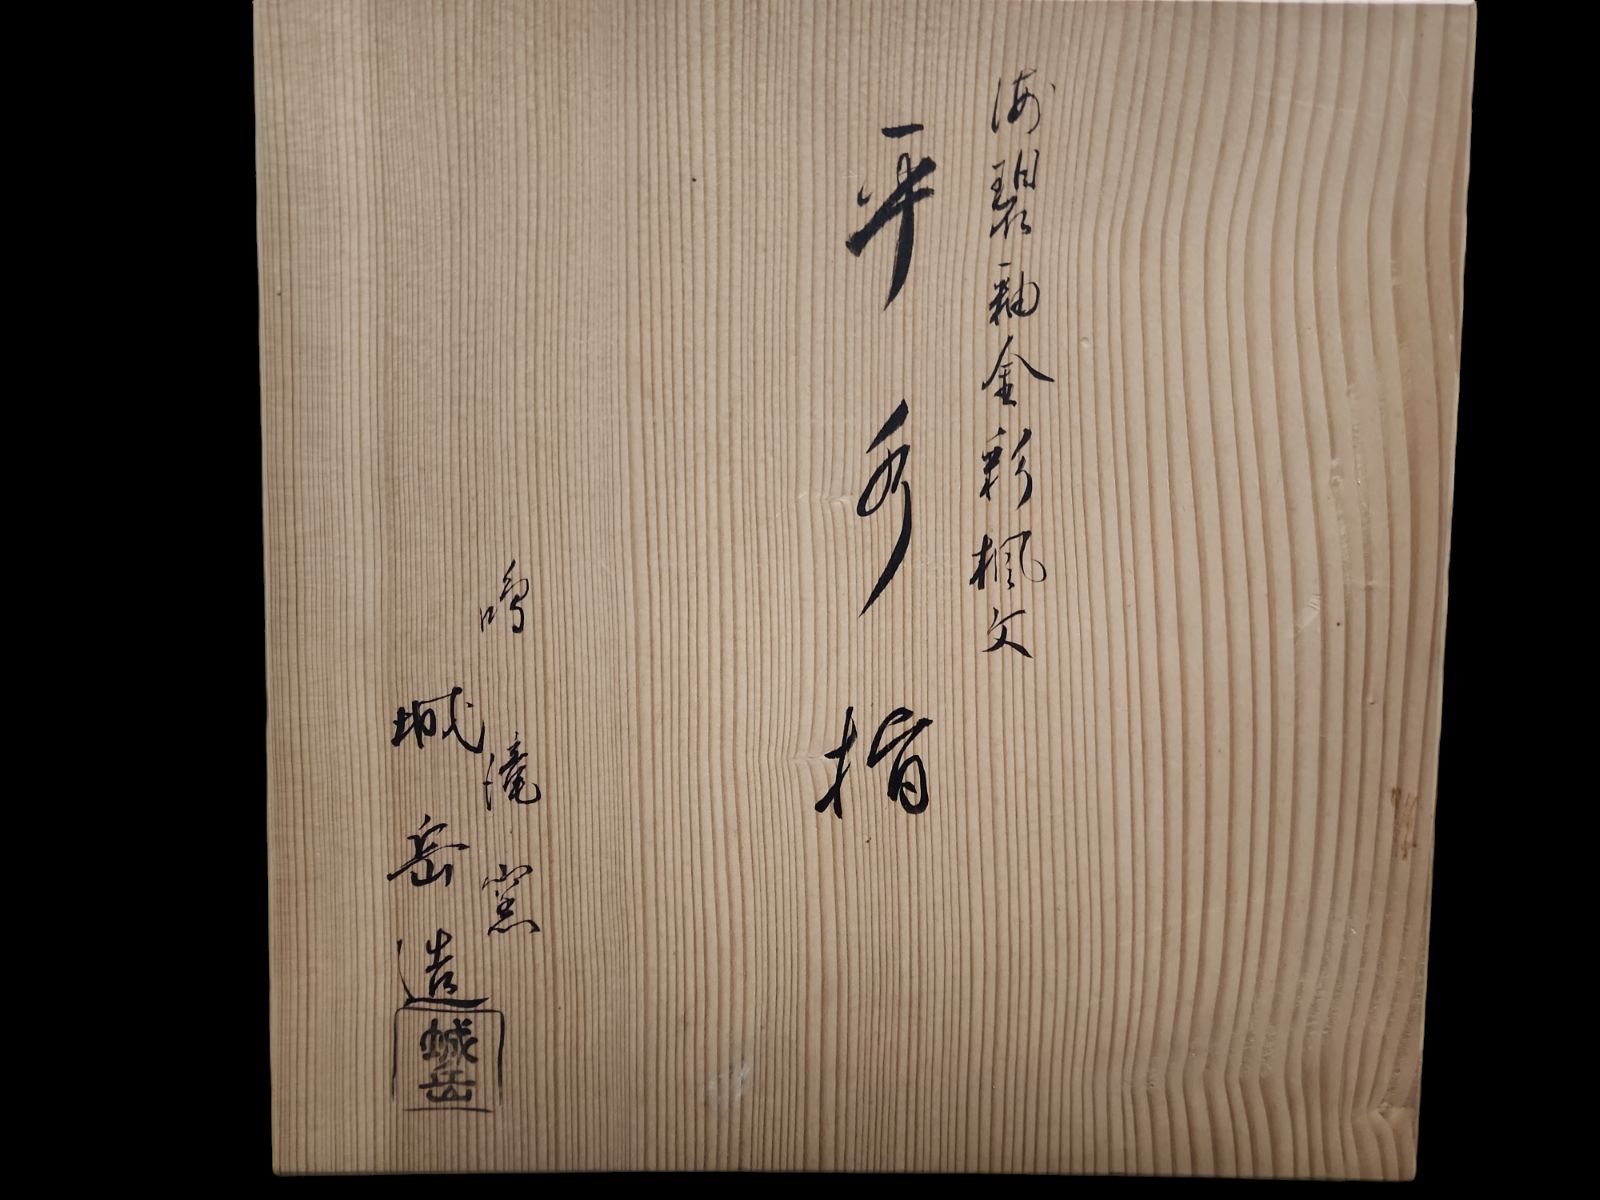 海碧釉金彩楓文
平水指
鳴滝窯
城岳造
城岳